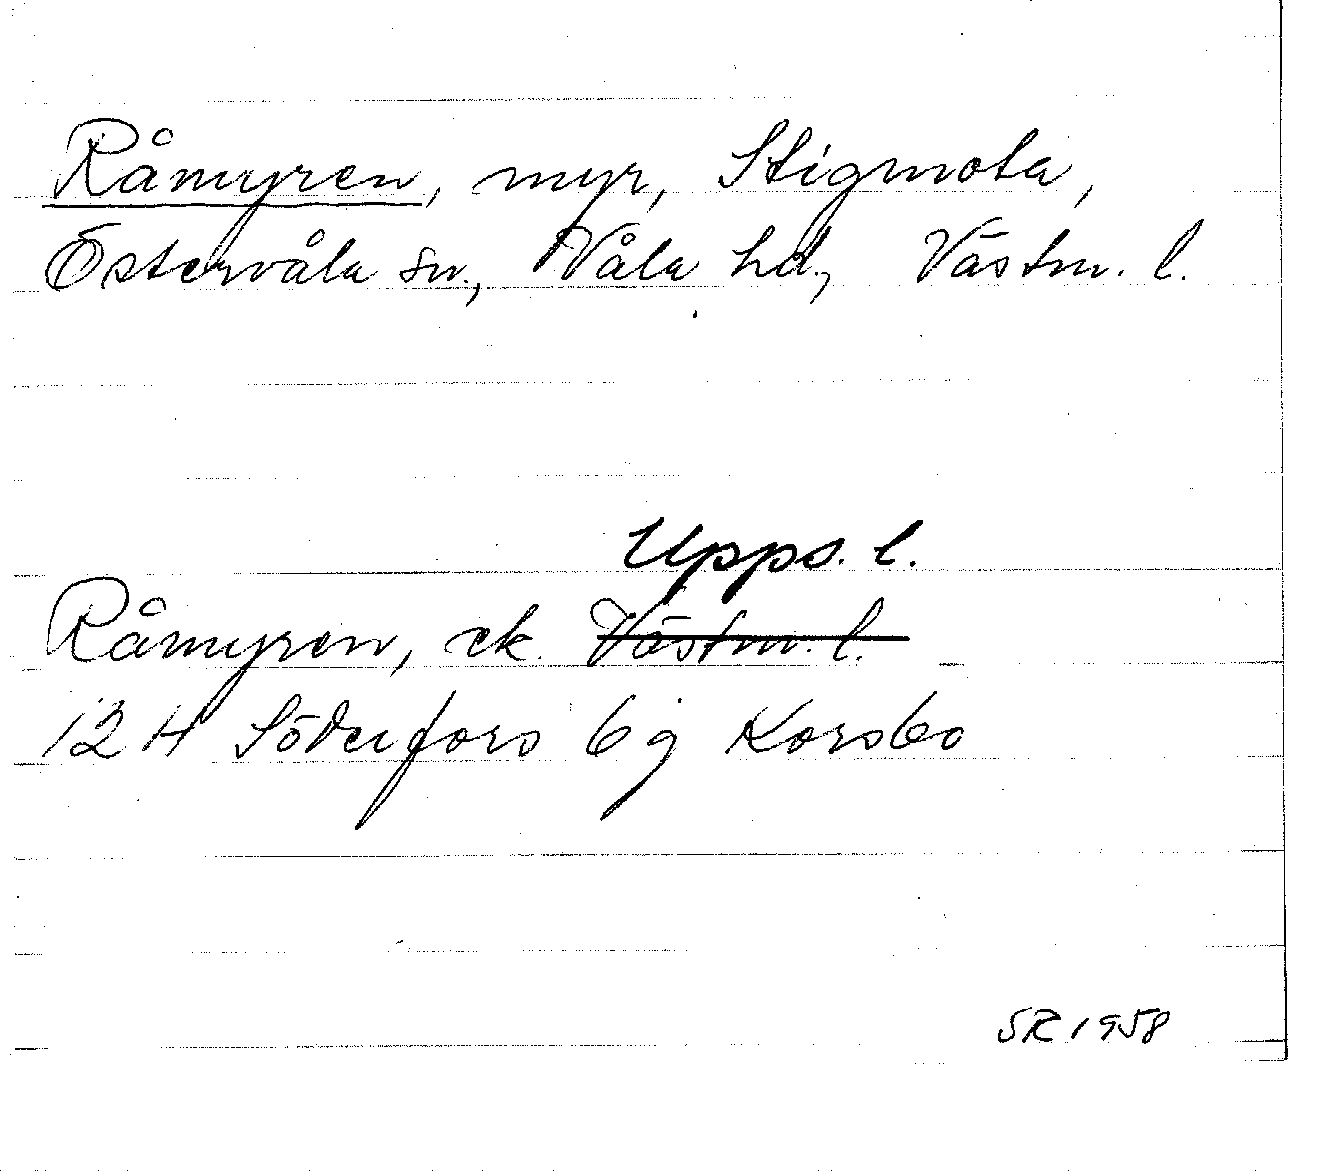 Råmyren, myr, Stigmota,
Östervåla sn., Våla hd., Västm. l.
Upps. l.
Råmyren, ek. Västm. l.
12 H Söderfors 6 g Korsbo
SR 1958